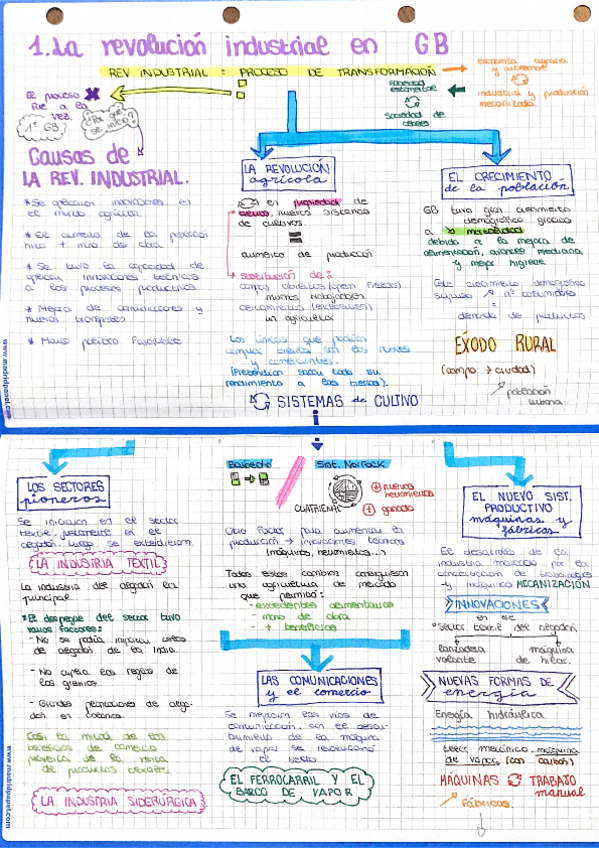 1. La revolución industrial en GB
REV INDUSTRIAL = PROCESO DE TRANSFORMACIÓN
economía agraria y artesanal
industria y producción
mecanizada.
Sociedad
estamental
Sociedad de
clases
El proceso
fue a la
vez
1º GB
¿Por qué
se inició?
Causas de
LA REV. INDUSTRIAL.
* Se aplicaron innovaciones en
el mundo agrícola.
* El aumento de la población
hizo + mano de obra
* Se tuvo la capacidad de
aplicar innovaciones técnicas
a los procesos productivos
* Mejora de comunicaciones y
nuevos transportes
* Marco político favorable
LA REVOLUCIÓN
agrícola
en propiedad de
tierras, nuevos sistemas
de cultivos.
=
aumento de producción
sustitución de:
campos abiertos (open fields)
muchos trabajadores
cercamientos (enclosures)
un agricultor
Los únicos que podían
comprar tierras son los nobles
y comerciantes.
(Pretendían sacar todo su
rendimiento a las tierras).
SISTEMAS de CULTIVO
EL CRECIMIENTO
de la población
GB tuvo gran crecimiento
demográfico gracias
a ↘ mortalidad
debido a la mejora de
alimentación, avances medicina,
y mejor higiene
Este crecimiento demográfico
supuso ↗ nº consumidores
=
demanda de productos
ÉXODO RURAL
(campo → ciudad)
población
urbana
www.madridpapel.com
LOS SECTORES
pioneros
Se iniciaron en el sector
textil, justamente en el
algodón. Luego se extendieron.
LA INDUSTRIA TEXTIL
La industria del algodón la
principal
* El despegue del sector tuvo
varios factores:
- No se podía importar telas
de algodón de la India.
- No sufría las reglas de
los gremios.
- Grandes plantaciones de algo-
dón en colonias.
Casi la mitad de los
beneficios de comercio
provenía de la venta
de productos textiles.
LA INDUSTRIA SIDERÚRGICA
Barbecho
Sist. Norfolk
CUATRIENAL
+ nuevas
herramientas
+ ganado
Otro factor para aumentar la
producción → innovaciones técnicas
(máquinas, herramientas..)
Todos estos cambios consiguieron
una agricultura de mercado
que permitió:
- excedentes alimentarios
- mano de obra
+ beneficios
LAS COMUNICACIONES
y el comercio
Se mejoran las vías de
comunicación, con el descu-
brimiento de la máquina
de vapor se revolucionó
el sector
EL FERROCARRIL Y EL
BARCO DE VAPOR
EL NUEVO SIST.
PRODUCTIVO
máquinas y
fábricas
El desarrollo de la
industria marcado por la
concentración de trabajadores
y máquinas MECANIZACIÓN
INNOVACIONES
en el
"Sector textil del algodón
lanzadera
volante
máquina
de hilar.
NUEVAS FORMAS DE
energía
Energía hidráulica
telar mecánico, máquina
de vapor (con carbón)
MÁQUINAS TRABAJO
manual
Fábricas
www.madridpapel.com